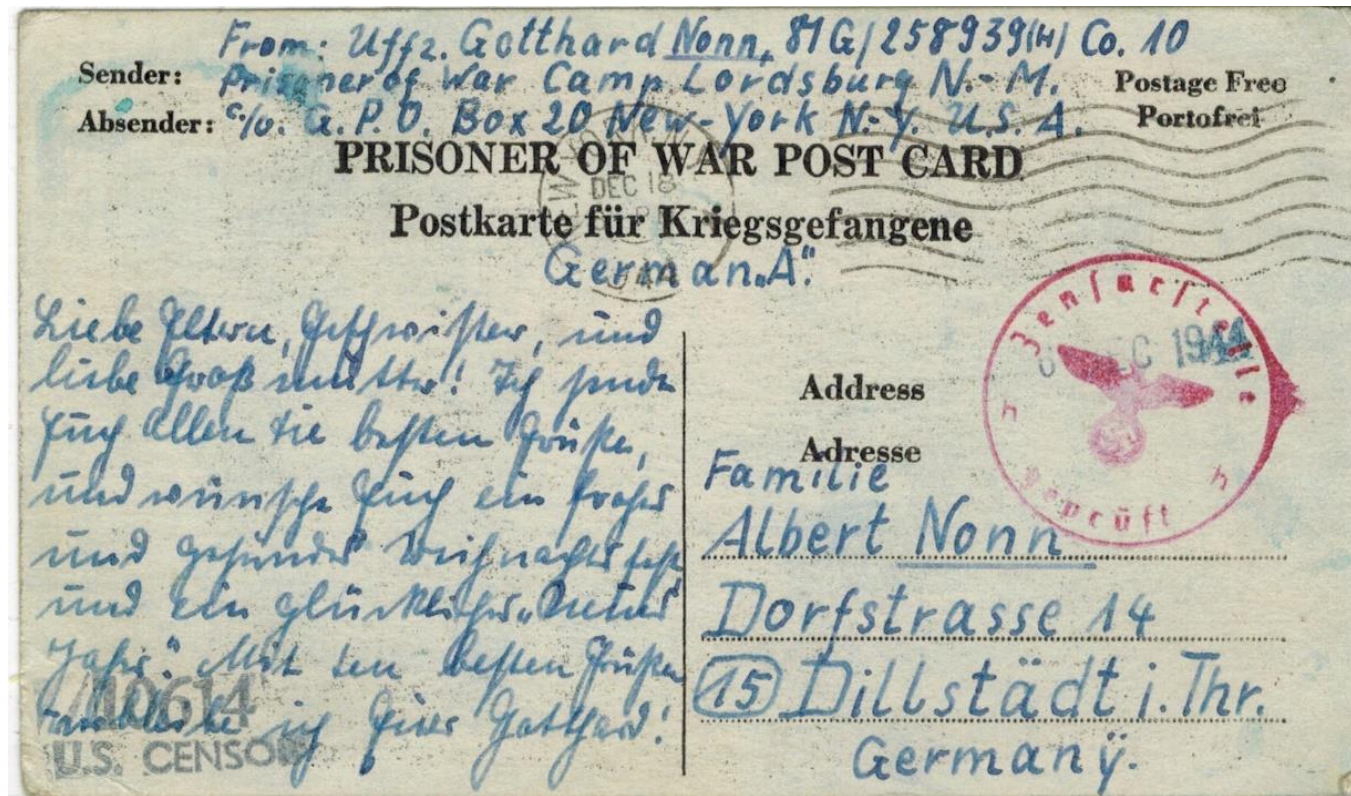 From: Uffz. Gotthard Nonn, 81G/258939(H) Co. 10
Sender: Prisoner of War Camp Lordsburg N.-M. Postage Free
Absender: c/o. G.P.O. Box 20 New-York N.-Y. U.S.A. Portofrei
PRISONER OF WAR POST CARD
DEC 18
Postkarte für Kriegsgefangene
German „A".
Liebe Eltern, Geschwister, und
liebe Großmutter! Ich sende
Euch allen die besten Grüße,
und wünsche Euch ein frohes
und gesundes Weihnachtsfest
und ein glückliches „Neues
Jahr". Mit den besten Grüßen
verbleibe ich Euer Gotthard!
10614
U.S. CENSOR
Zensurstelle
DEC 1944
geprüft
Address
Adresse
Familie
Albert Nonn
Dorfstrasse 14
(15) Dillstädt i. Thr.
Germanÿ.